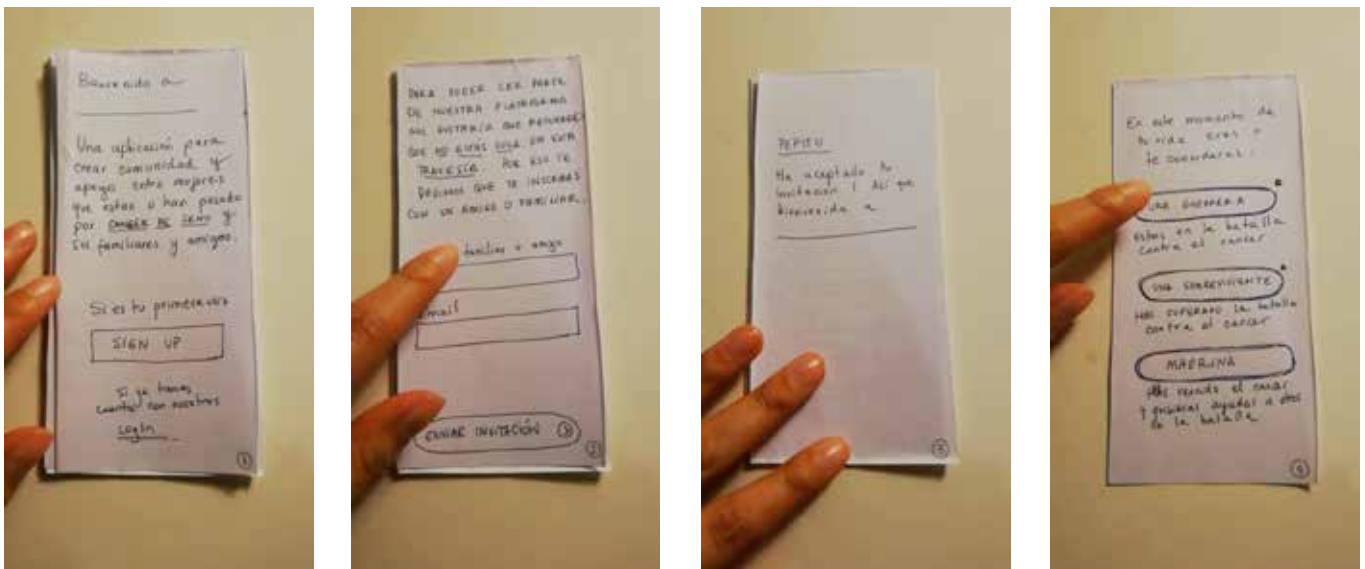 Bienvenido a
Una aplicación para
crear comunidad y
apoyo entre mujeres
que estan o han pasado
por CANCER DE SENO y
sus familiares y amigos.
Si es tu primera vez
SIGN UP
Si ya tienes
cuenta con nosotros
Login
1
PARA PODER SER PARTE
DE NUESTRA PLATAFORMA
NOS GUSTARÍA QUE RECUERDES
QUE NO ESTÁS SOLA EN ESTA
TRAVESÍA POR ESO TE
PEDIMOS QUE TE INSCRIBAS
CON UN AMIGO O FAMILIAR.
familiar o amigo
Email
ENVIAR INVITACIÓN
2
PEPITO
Ha aceptado tu
invitación! Así que
bienvenida a
3
En este momento de
tu vida eres o
te consideras:
UNA GUERRERA
Estas en la batalla
contra el cancer
UNA SOBREVIVIENTE
HAS SUPERADO la batalla
contra el cancer
MADRINA
Has vencido el cancer
y quieres ayudar a otros
en la batalla
4